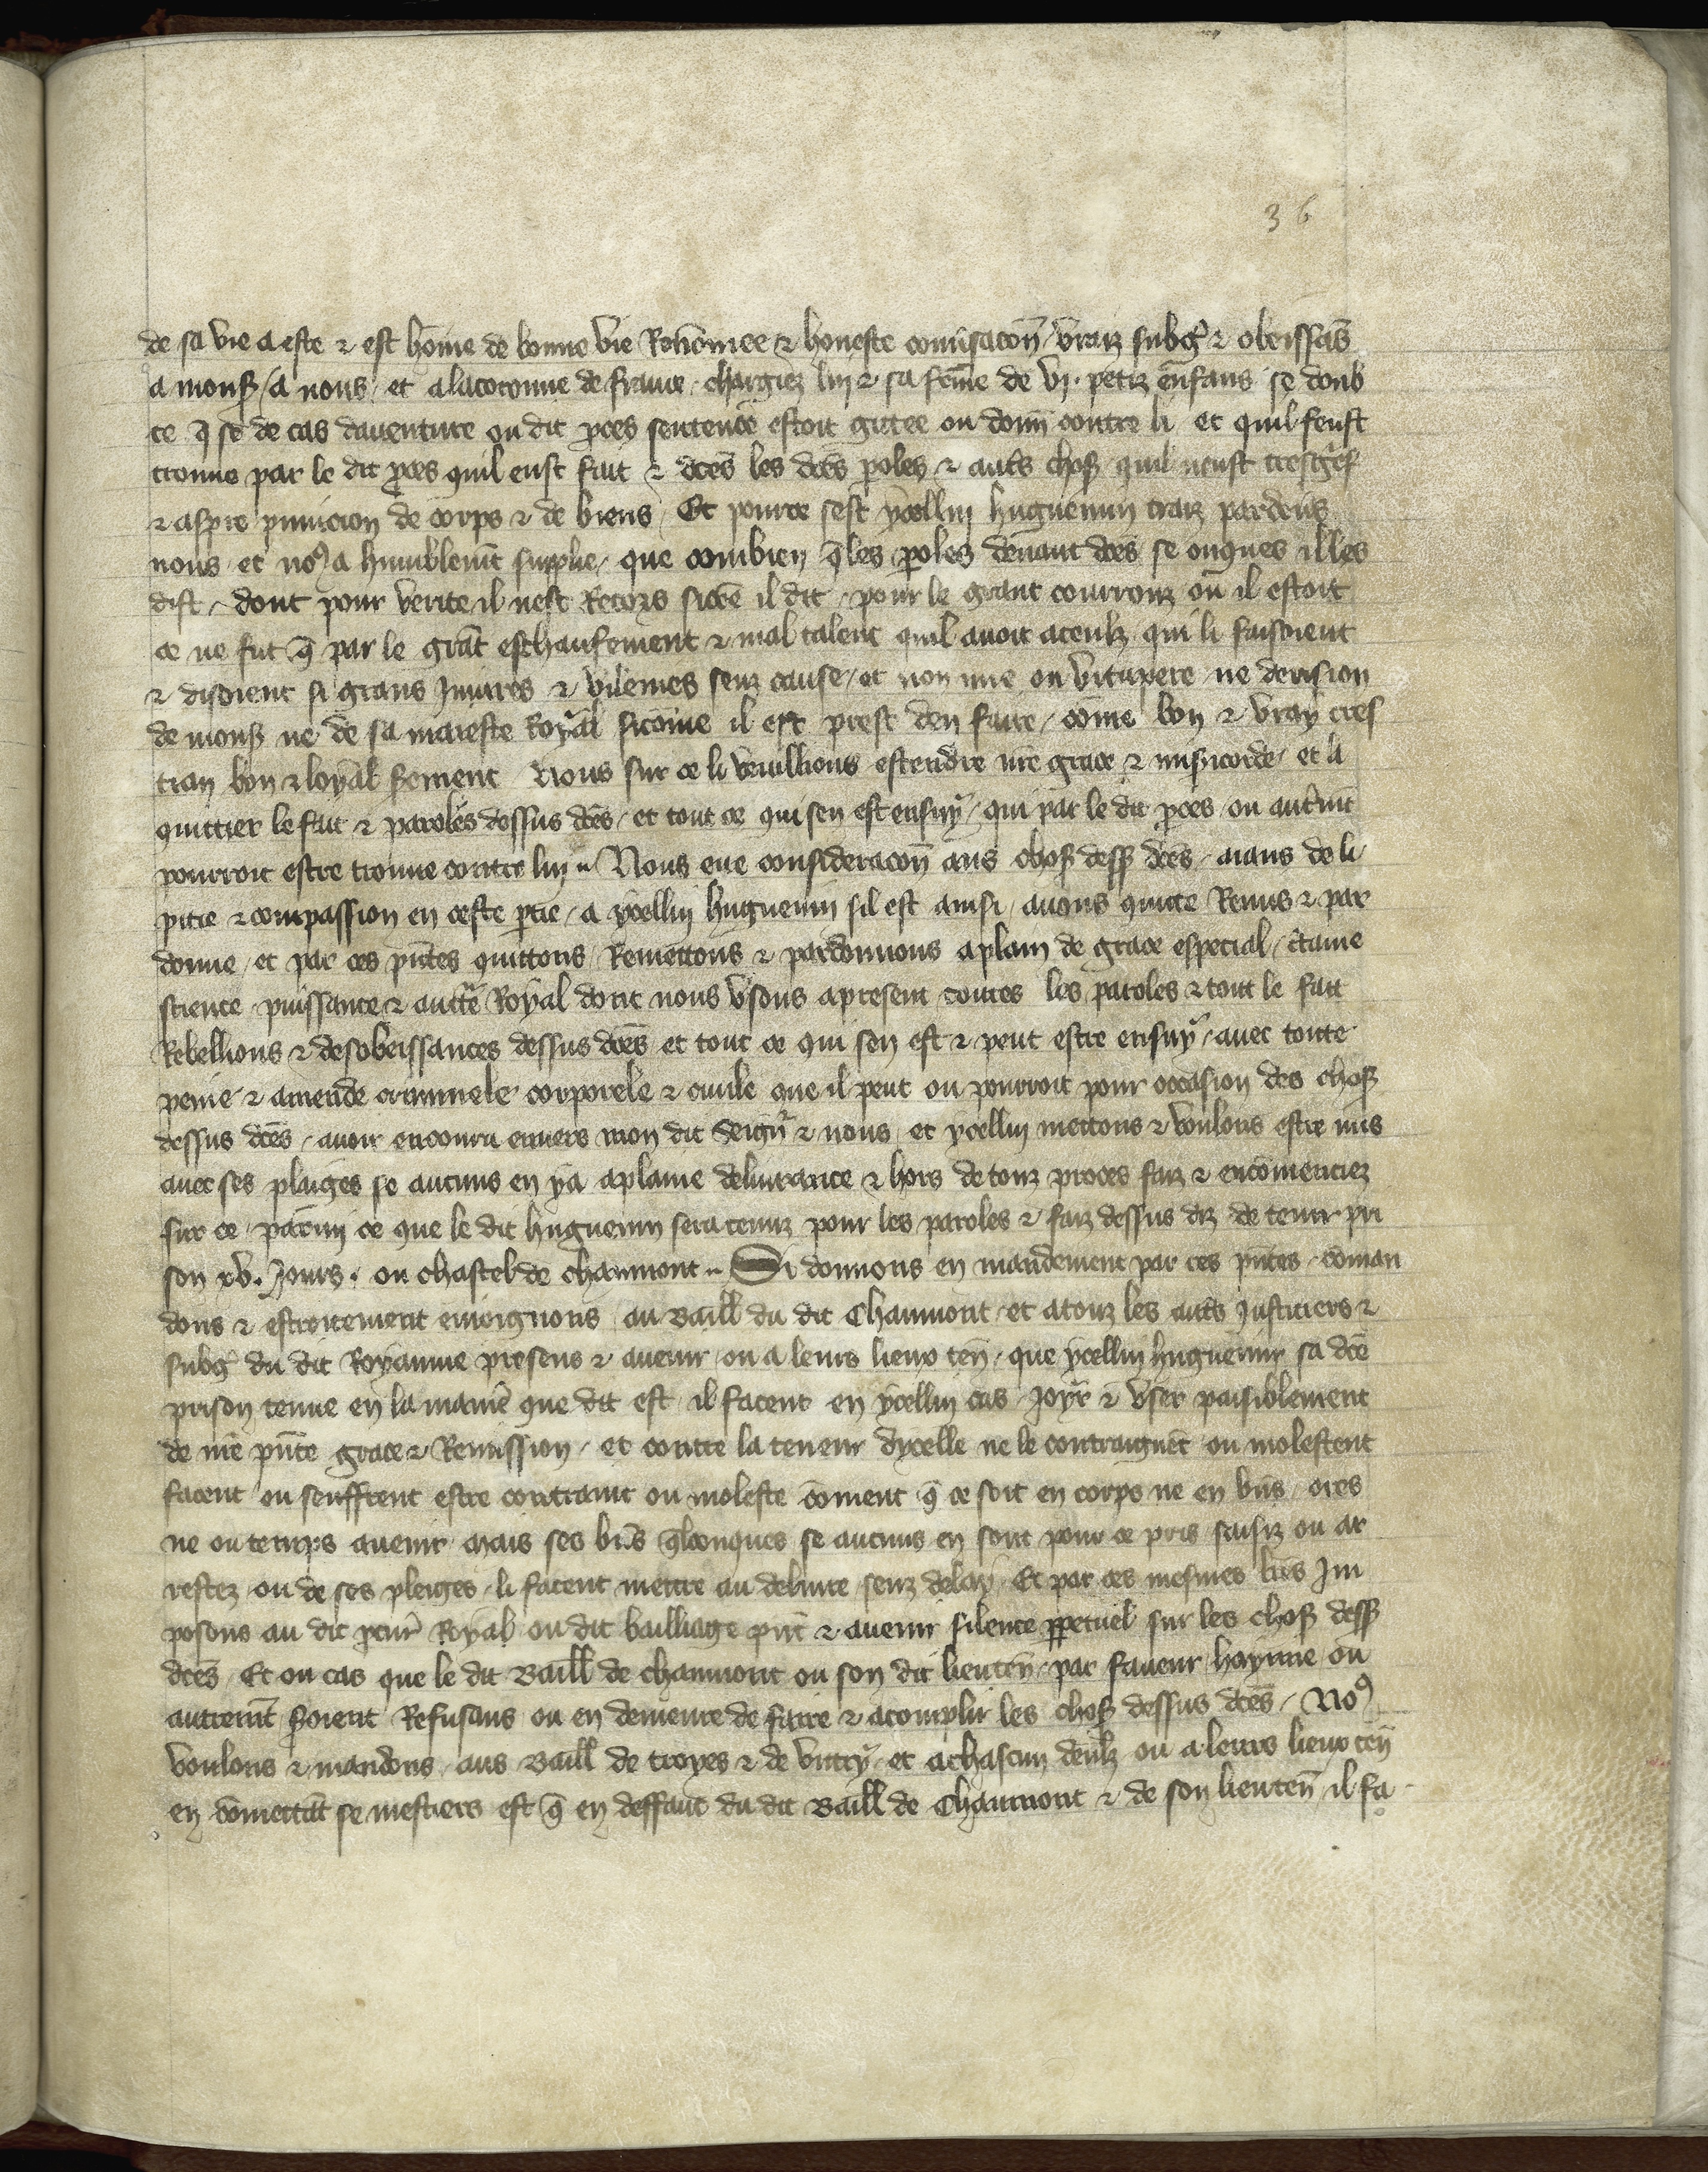 36
de sa vie a este ⁊ est hōme de bonne vie Renōmee ⁊ honeste conu̾sacōn vraiz subgᵉ ⁊ obeissās
a monsʳ / a nous / et a la coronne de france / chargiez luy ⁊ sa fēme de vj. petiz enfans se doub
te q̄ se de cas daventure ou dit ꝓces sentence estoit gitee ou donn̄ contre li et quil feust
trouue par le dit ꝓces quil eust fait ⁊ dc̄es les dc̄es ꝑoles ⁊ autˢ choses quil neust tresgᵉf
⁊ aspre punicion de corps ⁊ de biens Et pource sest ycelluy huguenin traiz pardeuˢ
nous et noꝰ a humblemt̄ supplie / que combien q̄ les ꝑoles deuant dc̄es se onques il les
dist / dont pour verite il nest Recors sicōe il dit / pour le grant courrouz ou il estoit
ce ne fut q̄ par le grāt eschaufement ⁊ mal talent quil auoit a ceulz qui li faisoient
⁊ disoient si grans Iniures ⁊ vilenies senz cause / et non mie ou vitupere ne derision
de monsʳ ne de sa maieste Royal sicōme il est prest den faire / cōme bon ⁊ vray cres
tian bon ⁊ loyal serement Nous sur ce li veuillions estendre nr̄e grace ⁊ mis̾icorde et li
quittier le fait ⁊ paroles dessus dc̄es / et tout ce qui sen est ensuy / qui par le dit ꝓces ou autˢmt̄
pourroit estre trouue contre luy Nous eue consideracōn aus choses dessˢ dc̄es / aians de li
pitie ⁊ compassion en ceste ꝑtie / a ycelluy huguenin sil est ainsi / auons quitte Remis ⁊ par
donne / et par ces pn̄tes quittons Remettons ⁊ pardonnons a plain de grace especial / c̄taine
science puissance ⁊ auctᵉ Royal dont nous vsons a present toutes les paroles ⁊ tout le fait
Rebellions ⁊ desobeissances dessus dc̄es et tout ce qui sen est ⁊ peut estre ensuy / auec toute
peine ⁊ amende criminele corporele ⁊ ciuile que il peut ou pourroit pour occasion des choses
dessus dc̄es / auoir encouru enuers mon dit seignʳ ⁊ nous et ycelluy mettons ⁊ voulons estre mis
auec ses plaiges se aucuns en ya a plaine deliurance ⁊ hors de touz proces faiz ⁊ encōmenciez
sur ce / parmi ce que le dit huguenin sera tenuz pour les paroles ⁊ faiz dessus diz de tenir pri
son xv. Jours. ou chastel de chaumont Si donnons en mandement par ces pn̄tes cōman
dons ⁊ estroitement enioignons au Baill̄ du dit Chaumont et a touz les autˢ Justiciers ⁊
subgᵉ du dit Royaume presens ⁊ auenir ou a leurs lieux ten̄ / que ycelluy huguenin sa dc̄e
prison tenue en la manie̾ que dit est il facent en ycelluy cas Joyr ⁊ vser paisiblement
de nr̄e pn̄te grace ⁊ Remission / et contre la teneur dycelle ne le contraignēt ou molestent
facent ou seuffrent estre contraint ou moleste cōment q̄ ce soit en corps ne en biˢ ores
ne ou temps auenir mais ses biˢ q̄lconques se aucuns en sont pour ce pris saisiz ou ar
restez / ou de ses pleiges li facent mettre au deliure senz delay Et par ces mesmes lr̄es Im
posons au dit ꝓcurʳ Royal ou dit bailliage pn̄t ⁊ auenir silence ꝑpetuel sur les choses dessˢ
dc̄es Et ou cas que le dit Baill̄ de chaumont ou son dit lieuten̄ par faueur hayne ou
autremt̄ s̾oient Refusans ou en demeure de faire ⁊ acomplir les choses dessus dc̄es / Noꝰ
voulons ⁊ mandons aus Baill̄ de troyes ⁊ de vitry et a chascun deulz ou a leurs lieux ten̄
en cōmettāt se mestiers est q̄ en deffaut du dit Baill̄ de Chaumont ⁊ de son lieuten̄ il fa